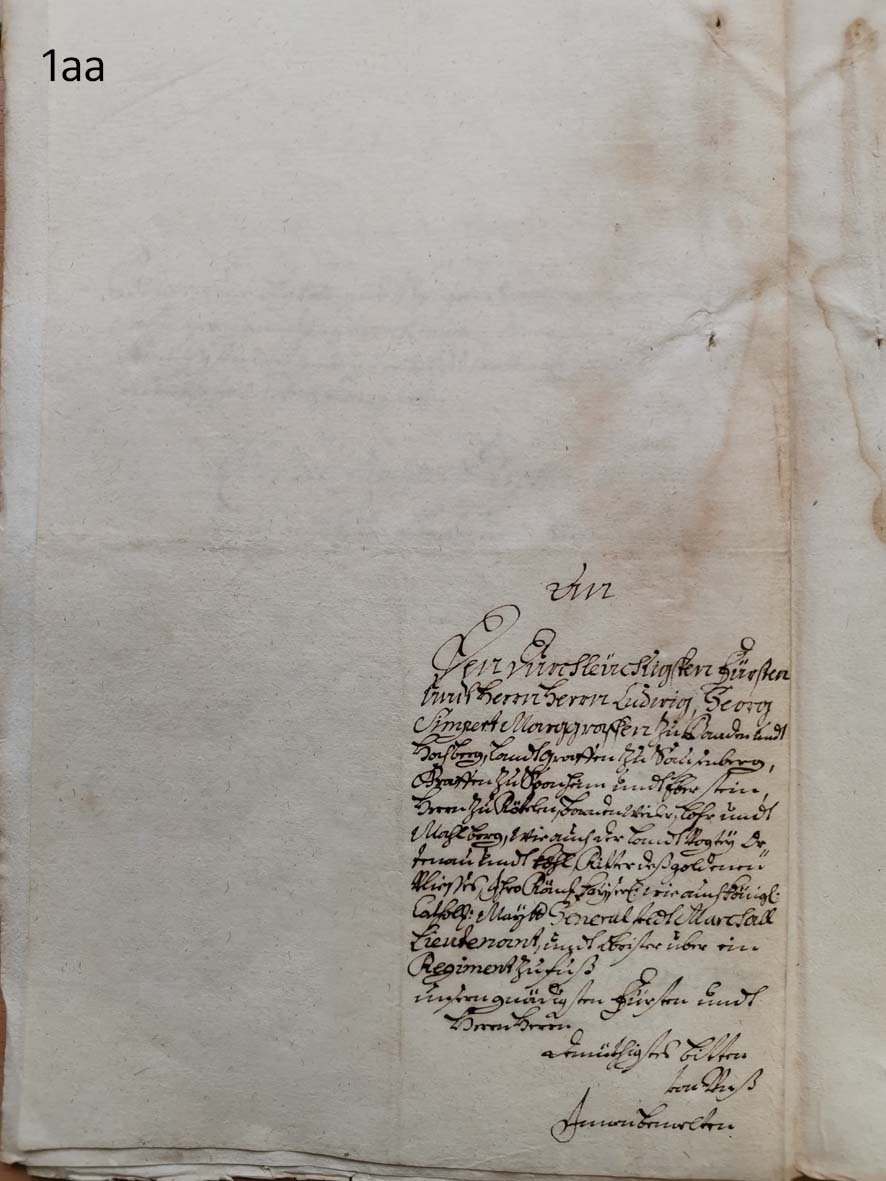 1aa
An
Den durchleüchtigsten Fürsten
undt Herrn Herrn Ludwig, Georg
Simpert Marggraffen zu Baaden undt
Hochberg, Landtgraffen zu Sausenberg,
Graffen zu Sponheim undt Eberstein,
Herrn zu Rötelen, Badenweiler, Lohr undt
Mahlberg, wie auch der Landt Vogteÿ Or-
tenau undt Kehl, Ritter deß goldenen
Vliesses, Ihro Röm: Kaÿserl: wie auch Königl:
Cathol: Maÿtt General Feldt Marchall
Lieutenant, undt Obrister über ein
Regiment zu fuß
unsern gnädigsten Fürsten undt
Herrn Herrn
demüthigstes bitten
von
Innenbemelten